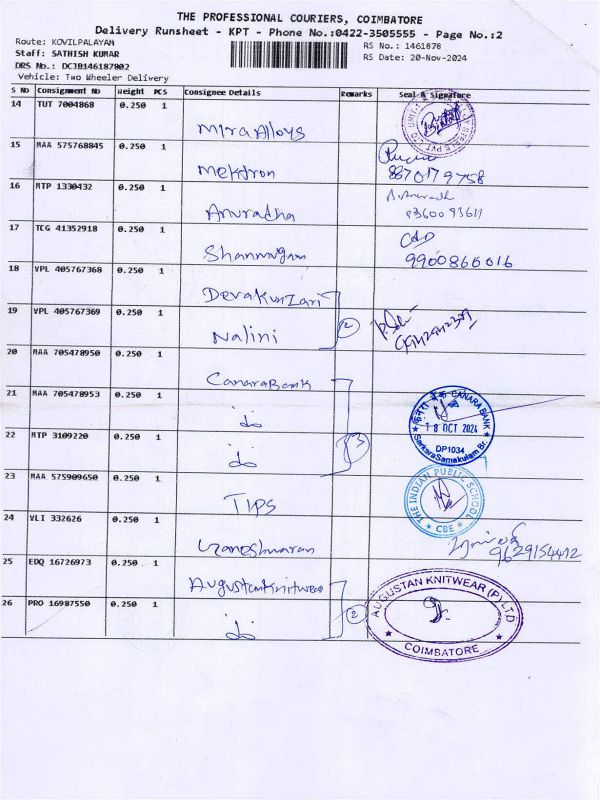 THE PROFESSIONAL COURIERS, COIMBATORE
Delivery Runsheet - KPT - Phone No.:0422-3505555 - Page No.:2
Route: KOVILPALAYAM
RS No.: 1461878
Staff: SATHISH KUMAR
RS Date: 20-Nov-2024
DRS No.: DCJB146187802
Vehicle: Two Wheeler Delivery
S No Consignment No Weight PCS Consignee Details Remarks Seal & Signature
14 TUT 7004868 0.250 1
Mira Alloys
15 MAA 575768845 0.250 1
Mektron 8870179758
16 MTP 1330432 0.250 1
Anuradha 9360093611
17 TCG 41352918 0.250 1
Shanmugam 9900866016
18 VPL 405767368 0.250 1
Devakunzari
19 VPL 405767369 0.250 1
Nalini 2
20 MAA 705478950 0.250 1
Canara Bank
21 MAA 705478953 0.250 1
do
CANARA BANK
18 OCT 2024
DP1034
SarkaraSamakulam Br.
22 MTP 3109220 0.250 1
do 3
23 MAA 575909650 0.250 1
TIPS
THE INDIAN PUBLIC SCHOOL
CBE
24 VLI 332626 0.250 1
Ganeshwaran 9629154412
25 EDQ 16726973 0.250 1
Augustan Knitwear
26 PRO 16987550 0.250 1
do 2
AUGUSTAN KNITWEAR (P) LTD
COIMBATORE